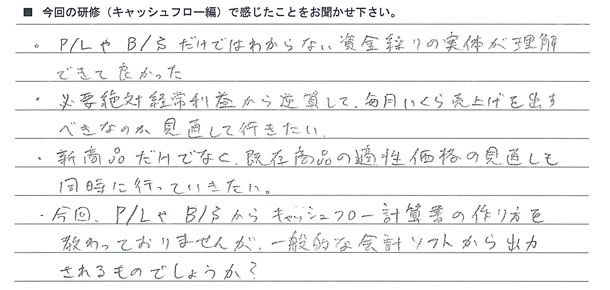 ■ 今回の研修（キャッシュフロー編）で感じたことをお聞かせ下さい。
・P/LやB/Sだけではわからない資金繰りの実体が理解
できて良かった
・必要絶対経常利益から逆算して、毎月いくら売上げを出す
べきなのか見直して行きたい。
・新商品だけでなく、既存商品の適性価格の見直しも
同時に行っていきたい。
・今回、P/LやB/Sからキャッシュフロー計算書の作り方を
教わっておりませんが、一般的な会計ソフトから出力
されるものでしょうか？